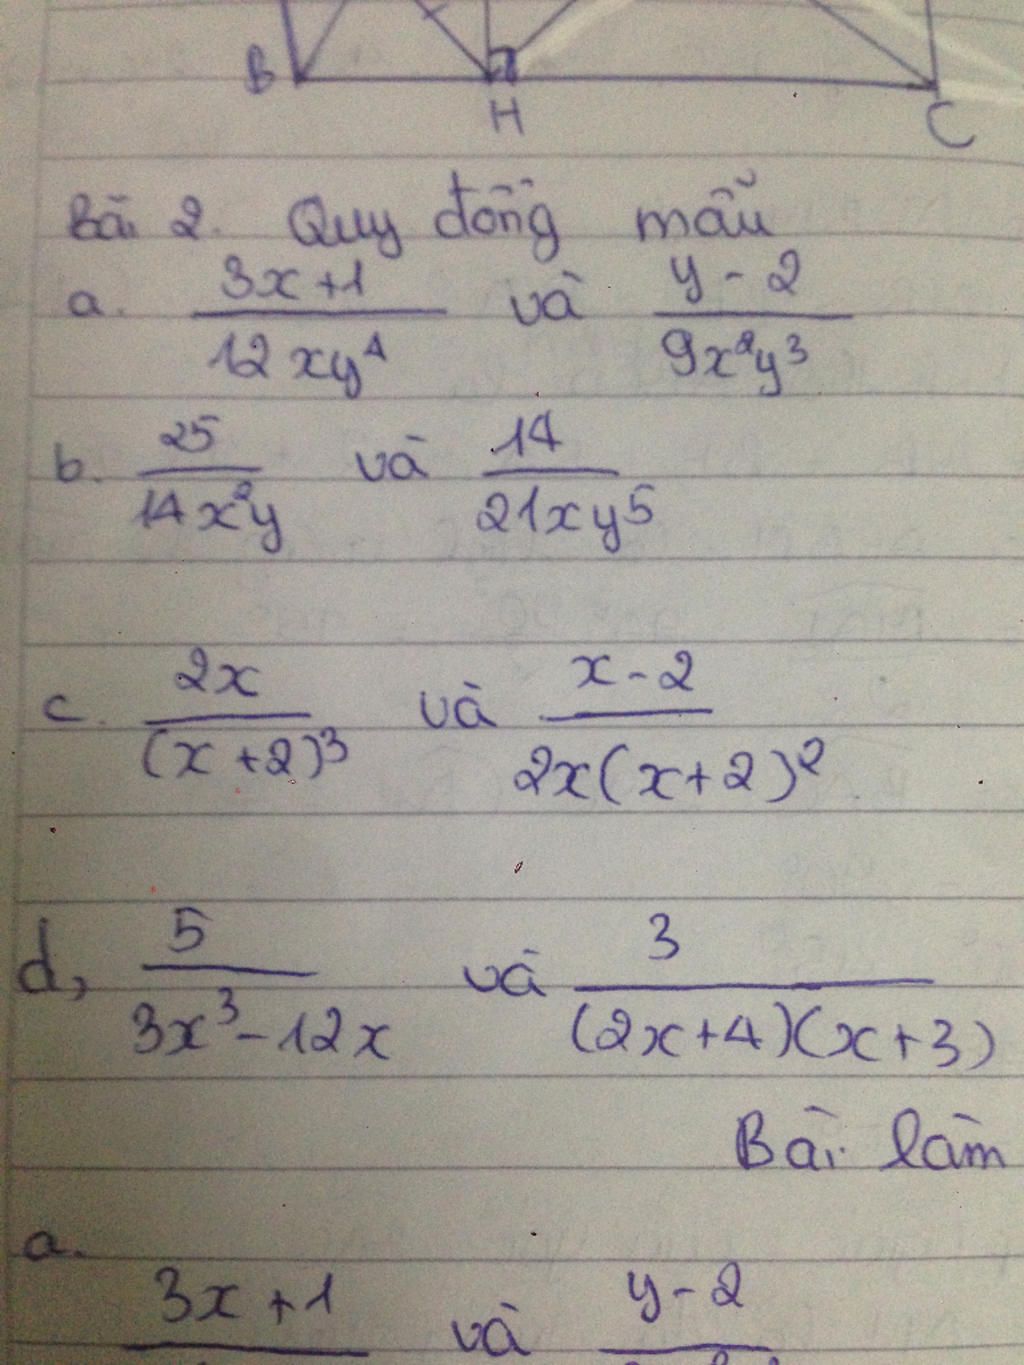 B H C
Bài 2. Quy đồng mẫu
a. \frac{3x+1}{12xy^4} và \frac{y-2}{9x^2y^3}
b. \frac{25}{14x^2y} và \frac{14}{21xy^5}
c. \frac{2x}{(x+2)^3} và \frac{x-2}{2x(x+2)^2}
d, \frac{5}{3x^3-12x} và \frac{3}{(2x+4)(x+3)}
Bài làm
a.
3x+1 và y-2